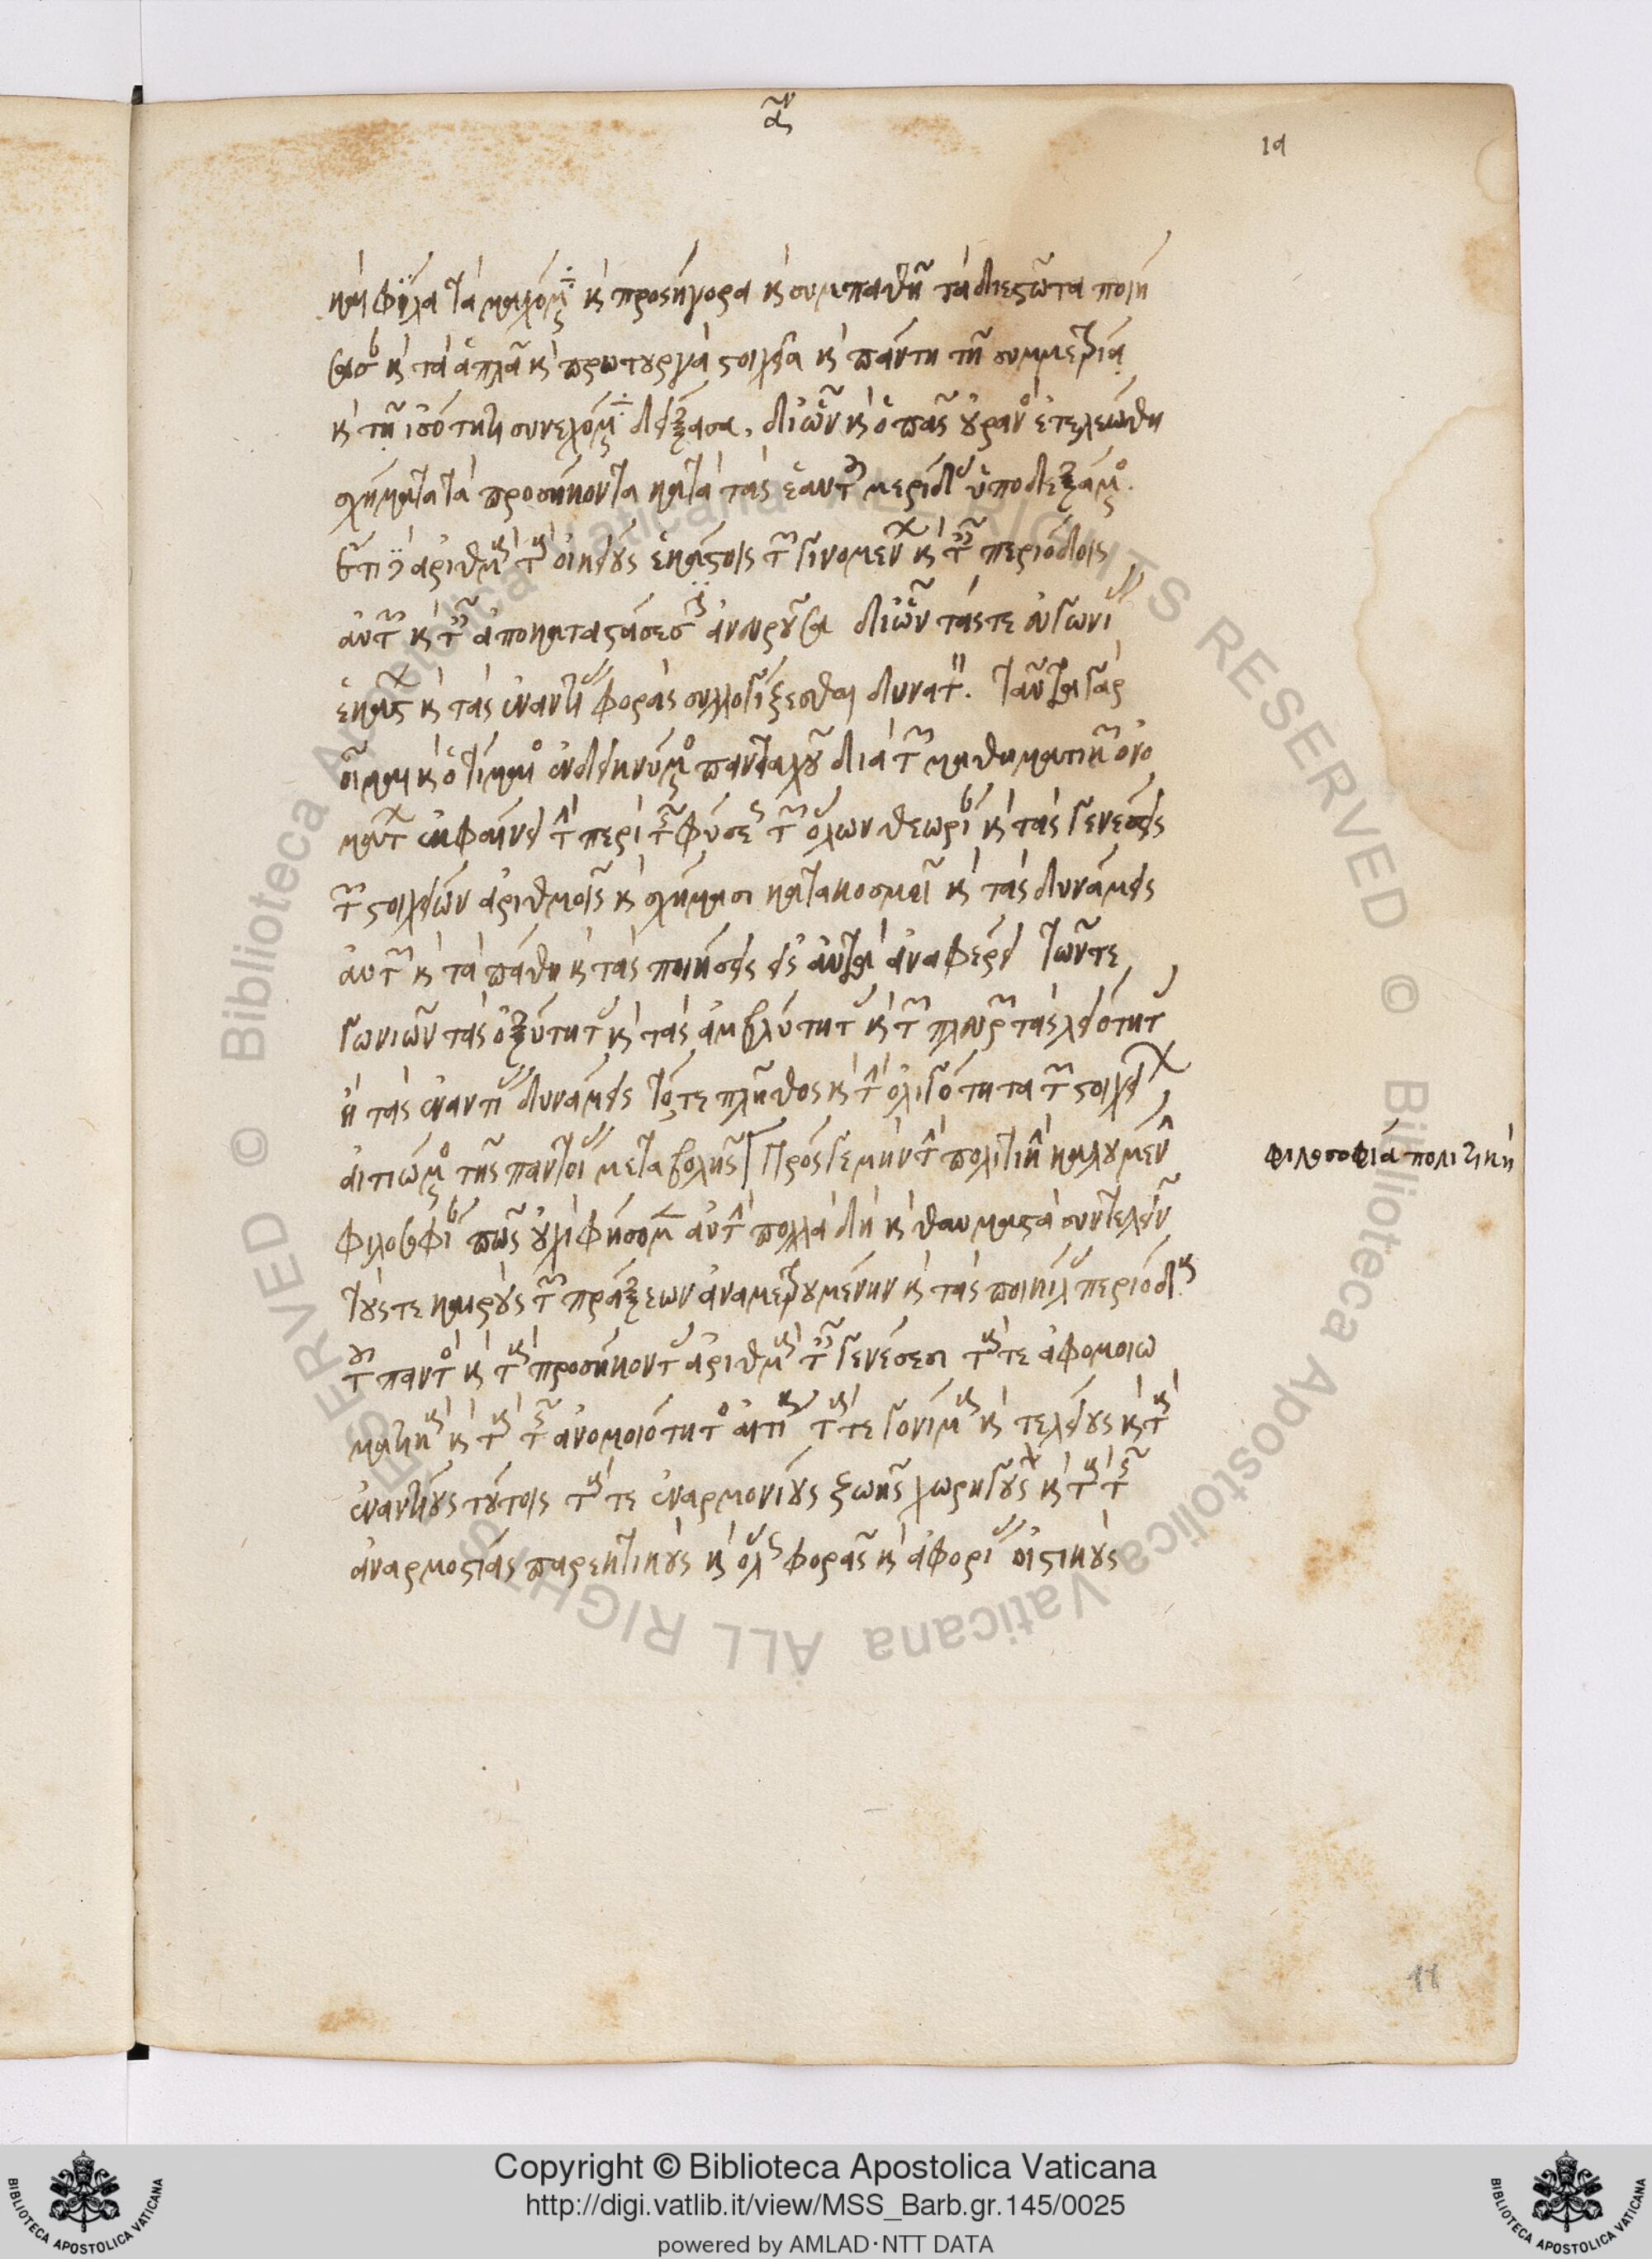 α
ια
καὶ φίλα τὰ μαχόμενα καὶ προσήγορα καὶ συμπαθῆ τὰ διεστῶτα ποιή
σασα καὶ τὰ ἁπλᾶ καὶ πρωτουργὰ στοιχεῖα καὶ πάντη τῇ συμμετρίᾳ
καὶ τῇ ἰσότητι συνεχόμενα δείξασα, δι ὧν καὶ ὁ πᾶς οὐρανὸς ἐτελεώθη
σχήματα τὰ προσήκοντα κατὰ τὰς ἑαυτοῦ μερίδας ὑποδεξάμενος.
ἔτι δὲ ἀριθμοὺς τοὺς οἰκείους ἑκάστοις τῶν γινομένων καὶ ταῖς περιόδοις
αὐτῶν καὶ ταῖς ἀποκαταστάσεσιν ἀνευροῦσα δι ὧν τάς τε εὐγωνίας
ἑκάστων καὶ τὰς ἐναντίας φορὰς συλλογίζεσθαι δυνατόν. ταῦτα γὰρ
οἶμαι καὶ ὁ τίμαιος ἐνδεικνύμενος πανταχοῦ διὰ τῶν μαθηματικῶν ὀνο
μάτων ἐκφαίνει τὴν περὶ τῆς φύσεως τῶν ὅλων θεωρίαν καὶ τὰς γενέσεις
τῶν στοιχείων ἀριθμοῖς καὶ σχήμασι κατακοσμεῖ καὶ τὰς δυνάμεις
αὐτῶν καὶ τὰ πάθη καὶ τὰς ποιήσεις εἰς αὐτὰ ἀναφέρει τῶν τε
γωνιῶν τὰς ὀξύτητας καὶ τὰς ἀμβλύτητας καὶ τῶν πλευρῶν τὰς λειότητας
ἢ τὰς ἐναντίας δυνάμεις τό τε πλῆθος καὶ τὴν ὀλιγότητα τῶν στοιχείων
αἰτιώμενος τῆς παντοίας μεταβολῆς Πρός γε μὴν τὴν πολιτικὴν καλουμένην
φιλοσοφίαν πῶς οὐχὶ φήσομεν αὐτὴν πολλὰ δὴ καὶ θαυμαστὰ συντελεῖν
τούς τε καιροὺς τῶν πράξεων ἀναμετρουμένην καὶ τὰς ποικίλας περιόδους
τοῦ παντὸς καὶ τοὺς προσήκοντας ἀριθμοὺς ταῖς γενέσεσι τούς τε ἀφομοιω
ματικοὺς καὶ τοὺς τῆς ἀνομοιότητος αἰτίους τούς τε γονίμους καὶ τελείους καὶ τοὺς
ἐναντίους τούτοις τούς τε ἐναρμονίους ζωῆς χωρηγοὺς καὶ τοὺς τῆς
ἀναρμοστίας παρεκτικοὺς καὶ ὅλως φορᾶς καὶ ἀφορίας οἰστικοὺς
φιλοσοφία πολιτικὴ
11
© Biblioteca Apostolica Vaticana ALL RIGHTS RESERVED © Biblioteca Apostolica Vaticana ALL RIGHTS RESERVED
Copyright © Biblioteca Apostolica Vaticana
http://digi.vatlib.it/view/MSS_Barb.gr.145/0025
powered by AMLAD·NTT DATA
BIBLIOTECA APOSTOLICA VATICANA
BIBLIOTECA APOSTOLICA VATICANA